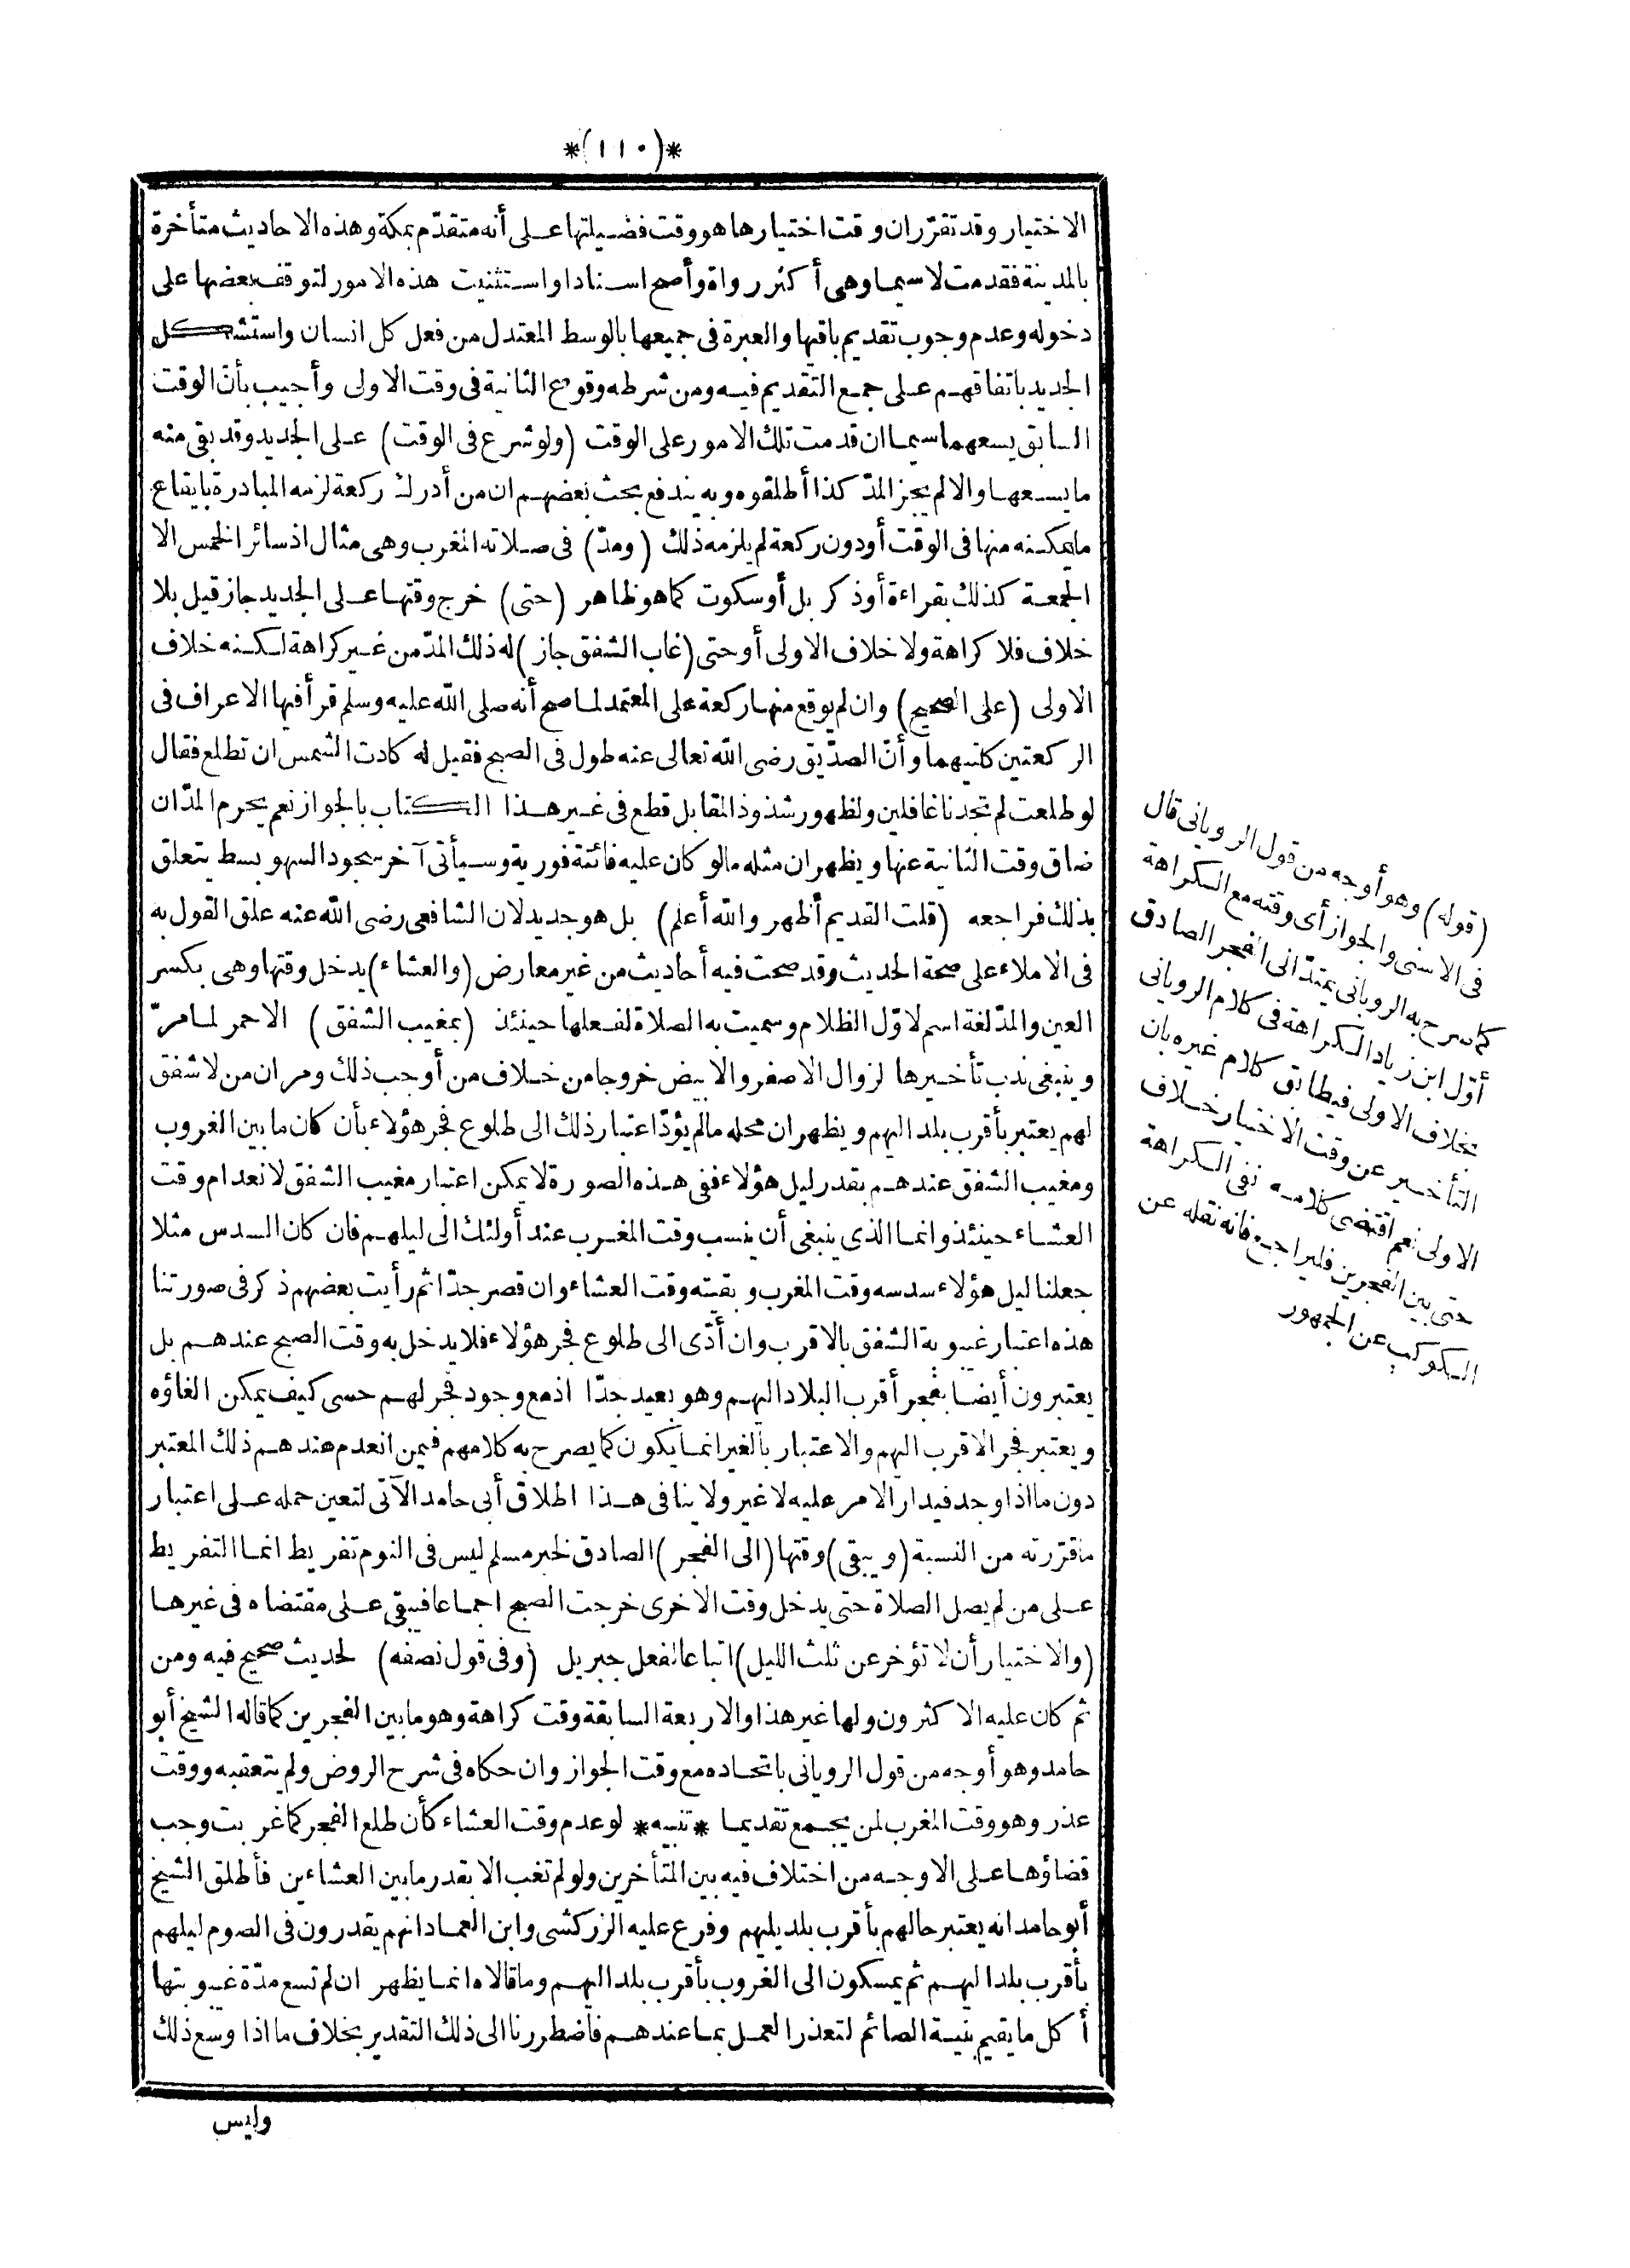 *(١١٠)*
الاختيار وقد تقرّر ان وقت اختيارها هو وقت فضيلتها على أنه متقدّم بمكة وهذه الاحاديث متأخرة
بالمدينة فقدمت لا سيما وهى أكثر رواة وأصح اسنادا واستثنيت هذه الامور لتوقف بعضها على
دخوله وعدم وجوب تقديم باقيها والعبرة فى جميعها بالوسط المعتدل من فعل كل انسان واستشكل
الجديد باتفاقهم على جمع التقديم فيه ومن شرطه وقوع الثانية فى وقت الاولى وأجيب بأنّ الوقت
السابق يسعهما سيما ان قدمت تلك الامور على الوقت (ولو شرع فى الوقت) على الجديد وقد بقى منه
ما يسعها والا لم يجز المدّ كذا أطلقوه وبه يندفع بحث بعضهم ان من أدرك ركعة لزمه المبادرة بايقاع
ما يمكنه منها فى الوقت أو دون ركعة لم يلزمه ذلك (ومدّ) فى صلاته المغرب وهى مثال اذ سائر الخمس الا
الجمعة كذلك بقراءة أو ذكر بل أو سكوت كما هو ظاهر (حتى) خرج وقتها على الجديد جاز قيل بلا
خلاف فلا كراهة ولا خلاف الاولى أو حتى (غاب الشفق جاز) له ذلك المدّ من غير كراهة لكنه خلاف
الاولى (على الصحيح) وان لم يوقع منها ركعة على المعتمد لما صح أنه صلى الله عليه وسلم قرأ فيها الاعراف فى
الركعتين كلتيهما وأنّ الصدّيق رضى الله تعالى عنه طول فى الصبح فقيل له كادت الشمس ان تطلع فقال
لو طلعت لم تجدنا غافلين ولظهور شذوذ المقابل قطع فى غير هذا الكتاب بالجواز نعم يحرم المدّ ان
ضاق وقت الثانية عنها ويظهر ان مثله ما لو كان عليه فائتة فورية وسيأتى آخر سجود السهو بسط يتعلق
بذلك فراجعه (قلت القديم أظهر والله أعلم) بل هو جديد لان الشافعى رضى الله عنه علق القول به
فى الاملاء على صحة الحديث وقد صحت فيه أحاديث من غير معارض (والعشاء) يدخل وقتها وهى بكسر
العين والمدّ لغة اسم لاوّل الظلام وسميت به الصلاة لفعلها حينئذ (بمغيب الشفق) الاحمر لما مرّ
وينبغى ندب تأخيرها لزوال الاصفر والابيض خروجا من خلاف من أوجب ذلك ومر ان من لا شفق
لهم يعتبر بأقرب بلد اليهم ويظهر ان محله ما لم يؤدّ اعتبار ذلك الى طلوع فجر هؤلاء بأن كان ما بين الغروب
ومغيب الشفق عندهم بقدر ليل هؤلاء ففى هذه الصورة لا يمكن اعتبار مغيب الشفق لانعدام وقت
العشاء حينئذ وانما الذى ينبغى أن ينسب وقت المغرب عند أولئك الى ليلهم فان كان السدس مثلا
جعلنا ليل هؤلاء سدسه وقت المغرب وبقيته وقت العشاء وان قصر جدّا ثم رأيت بعضهم ذكر فى صورتنا
هذه اعتبار غيبوبة الشفق بالاقرب وان أدّى الى طلوع فجر هؤلاء فلا يدخل به وقت الصبح عندهم بل
يعتبرون أيضا بفجر أقرب البلاد اليهم وهو بعيد جدّا اذ مع وجود فجر لهم حسى كيف يمكن الغاؤه
ويعتبر فجر الاقرب اليهم والاعتبار بالغير انما يكون كما يصرح به كلامهم فيمن انعدم عندهم ذلك المعتبر
دون ما اذا وجد فيدار الامر عليه لا غير ولا ينافى هذا اطلاق أبى حامد الآتى لتعين حمله على اعتبار
ما قرّرته من النسبة (ويبقى) وقتها (الى الفجر) الصادق لخبر مسلم ليس فى النوم تفريط انما التفريط
على من لم يصل الصلاة حتى يدخل وقت الاخرى خرجت الصبح اجماعا فيبقى على مقتضاه فى غيرها
(والاختيار أن لا تؤخر عن ثلث الليل) اتباعا لفعل جبريل (وفى قول نصفه) لحديث صحيح فيه ومن
ثم كان عليه الاكثرون ولها غير هذا والاربعة السابقة وقت كراهة وهو ما بين الفجرين كما قاله الشيخ أبو
حامد وهو أوجه من قول الرويانى باتحاده مع وقت الجواز وان حكاه فى شرح الروض ولم يتعقبه ووقت
عذر وهو وقت المغرب لمن يجمع تقديما *تنبيه* لو عدم وقت العشاء كأن طلع الفجر كما غربت وجب
قضاؤها على الاوجه من اختلاف فيه بين المتأخرين ولو لم تغب الا بقدر ما بين العشاءين فأطلق الشيخ
أبو حامد انه يعتبر حالهم بأقرب بلد يليهم وفرع عليه الزركشى وابن العماد انهم يقدرون فى الصوم ليلهم
بأقرب بلد اليهم ثم يمسكون الى الغروب بأقرب بلد اليهم وما قالاه انما يظهر ان لم تسع مدّة غيبوبتها
أكل ما يقيم بنية الصائم لتعذر العمل بما عندهم فاضطررنا الى ذلك التقدير بخلاف ما اذا وسع ذلك
وليس
(قوله) وهو أوجه من قول الرويانى قال
فى الاسنى والجواز أى وقته مع الكراهة
كما صرح به الرويانى يمتدّ الى الفجر الصادق
أوّل ابن زياد الكراهة فى كلام الرويانى
بخلاف الاولى فيطابق كلام غيره بان
التأخير عن وقت الاختيار خلاف
الاولى نعم اقتضى كلامه نفى الكراهة
حتى بين الفجرين فليراجع فانه نقله عن
الكوكب عن الجمهور